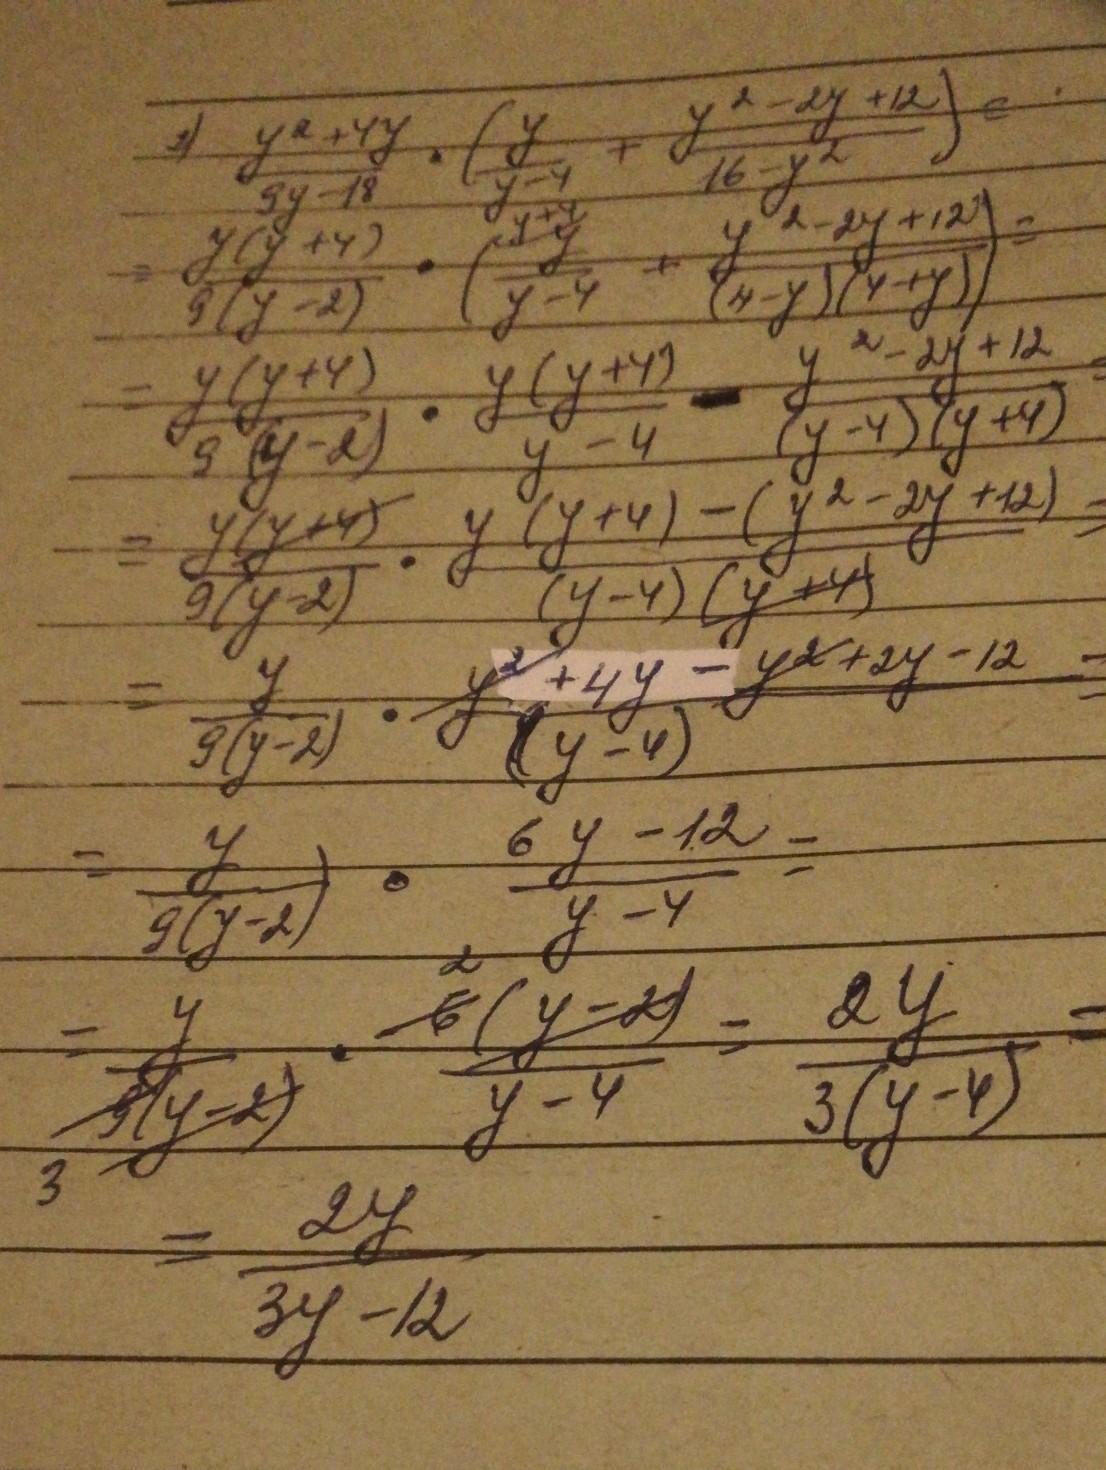 1) (y² + 4y)/(9y - 18) · (y/(y - 4) + (y² - 2y + 12)/(16 - y²)) =
= y(y + 4)/9(y - 2) · (y+4 y/(y - 4) + (y² - 2y + 12)/(4 - y)(4 + y)) =
= y(y + 4)/9(y - 2) · y(y + 4)/(y - 4) - (y² - 2y + 12)/(y - 4)(y + 4) =
= y(y + 4)/9(y - 2) · (y(y + 4) - (y² - 2y + 12))/(y - 4)(y + 4) =
= y/9(y - 2) · (y² + 4y - y² + 2y - 12)/(y - 4) =
= y/9(y - 2) · (6y - 12)/(y - 4) =
= y/9(y - 2) 3 · 2 6(y - 2)/(y - 4) = 2y/3(y - 4) =
= 2y/(3y - 12)